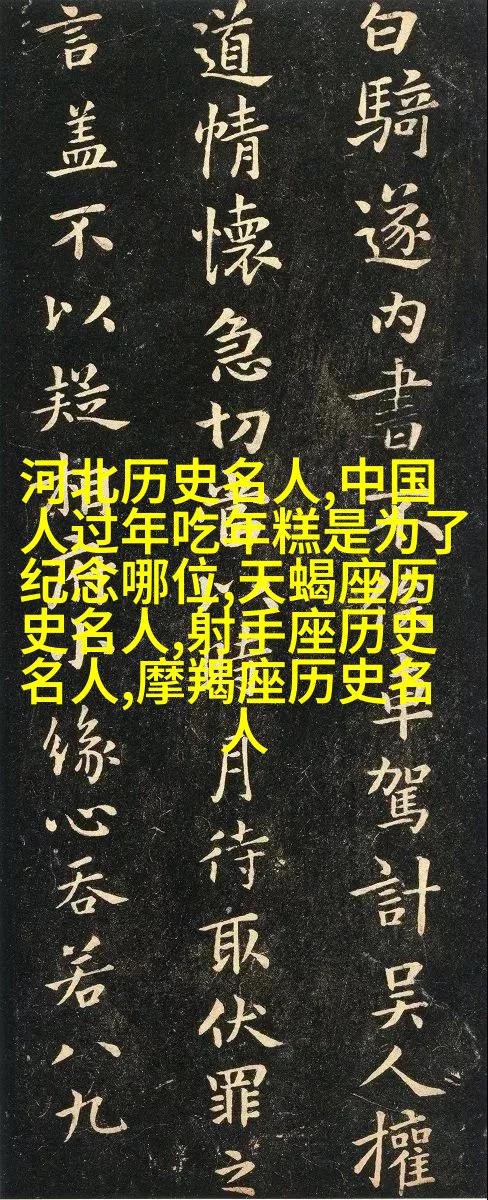 白騎遂内書不車駕計吳人權
道情懷急切當月待取伏罪之
言盖不以疑緣心吞若八九
河北历史名人,中国
人过年吃年糕是为了
纪念哪位,天蝎座历
史名人,射手座历史
名人,摩羯座历史名
人